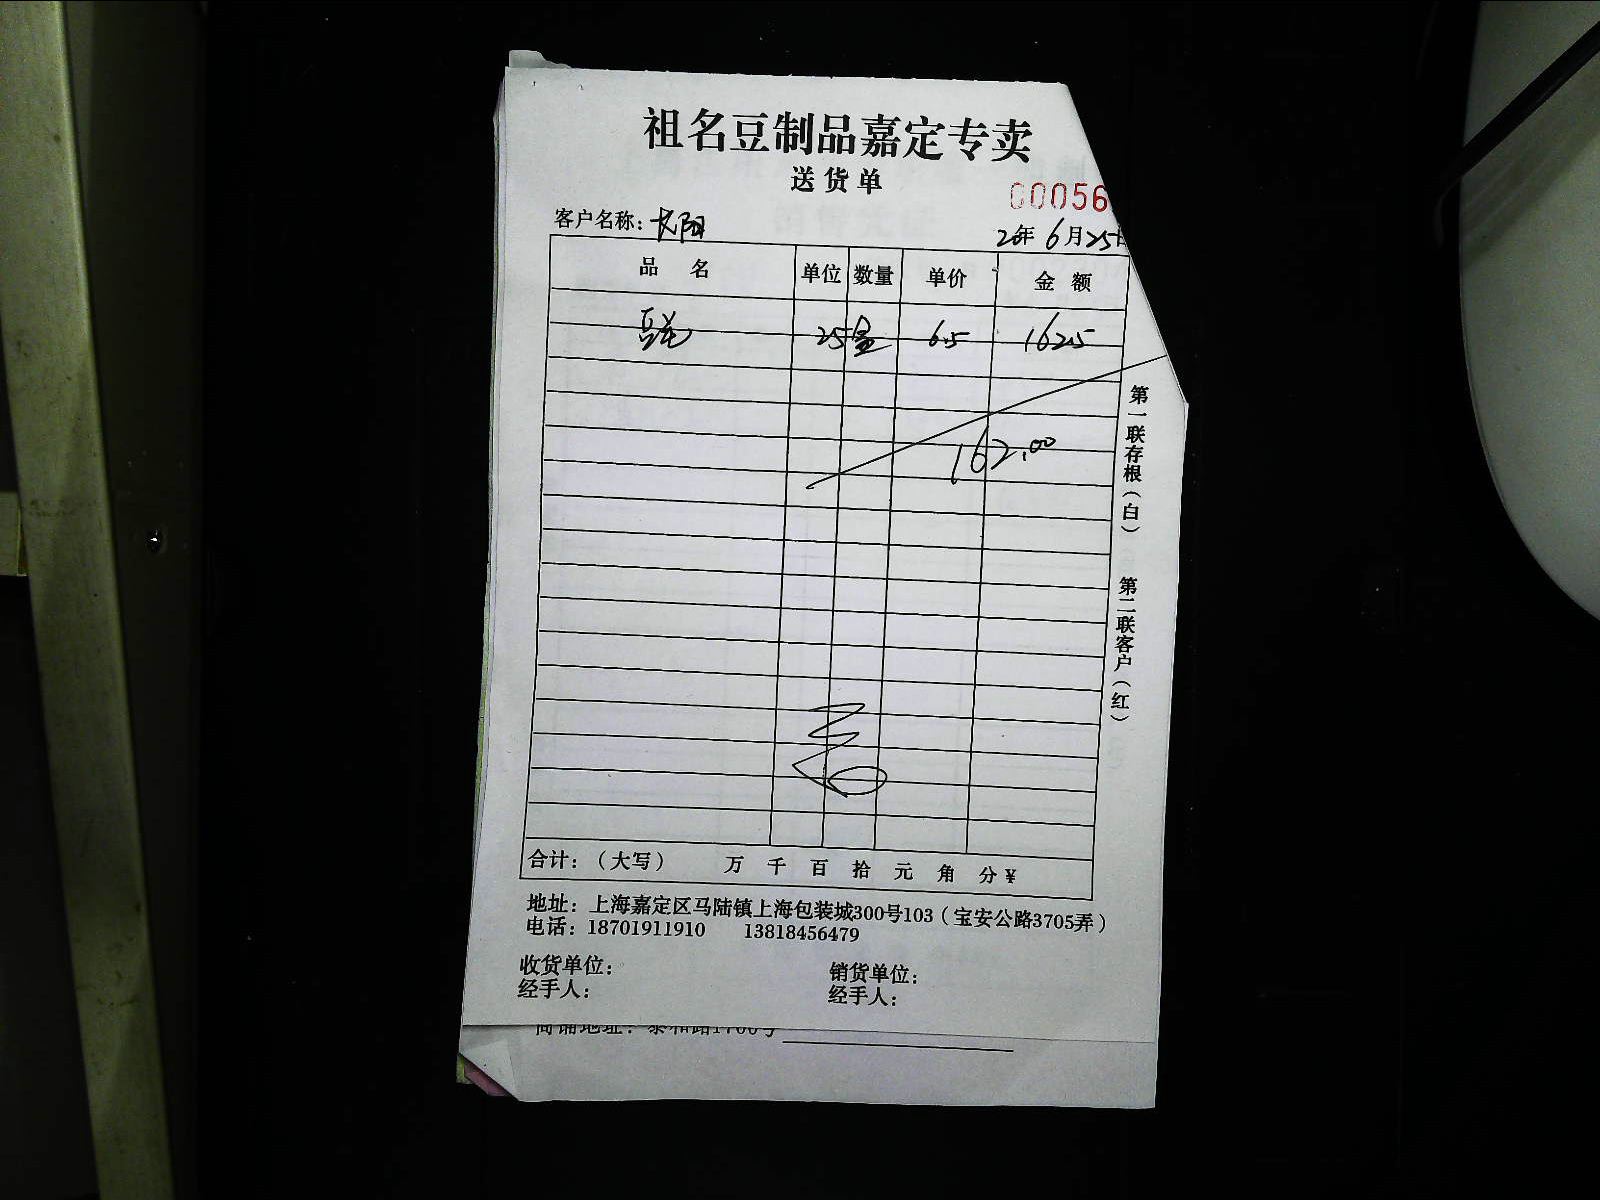 祖名豆制品嘉定专卖
送货单
00056
客户名称：长阳 20年6月25日
品 名 单位 数量 单价 金 额
25 6.5 162.5
162.00
第一联存根（白） 第二联客户（红）
合计：（大写） 万 千 百 拾 元 角 分 ¥
地址：上海嘉定区马陆镇上海包装城300号103（宝安公路3705弄）
电话：18701911910 13818456479
收货单位： 销货单位：
经手人： 经手人：
商铺地址：泰和路1700号